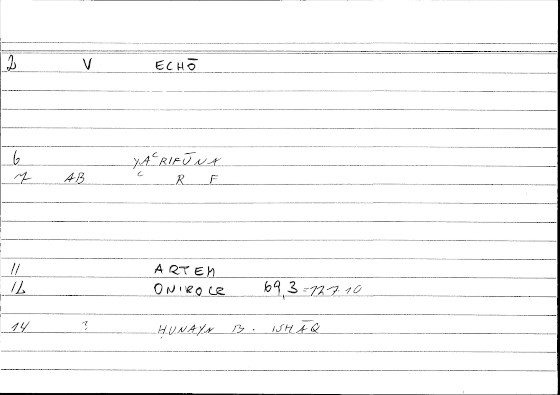 2 V ECHŌ
6 YAʿRIFŪNA
7 AB ʿ R F
11 ARTEM
12 ONIROCR 69,3=127.10
14 ? ḤUNAYN B. ISHĀQ